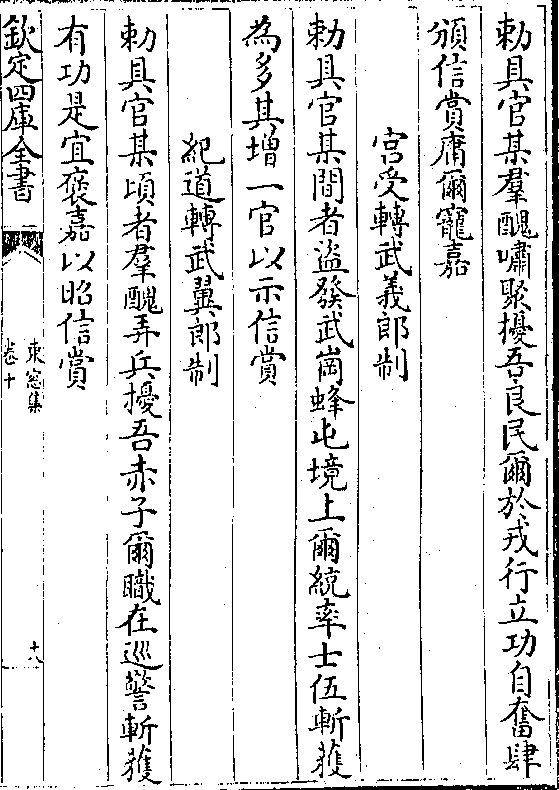 勅具官某羣醜嘯聚擾吾良民爾於戎行立功自奮肆
頒信賞庸爾寵嘉
宫受轉武義郎制
勅具官某間者盜發武岡蜂屯境上爾統率士伍斬獲
為多其增一官以示信賞
紀道轉武翼郎制
勅具官某頃者羣醜弄兵擾吾赤子爾職在巡警斬獲
有功是宜褒嘉以昭信賞
欽定四庫全書
東窓集
卷十
十八